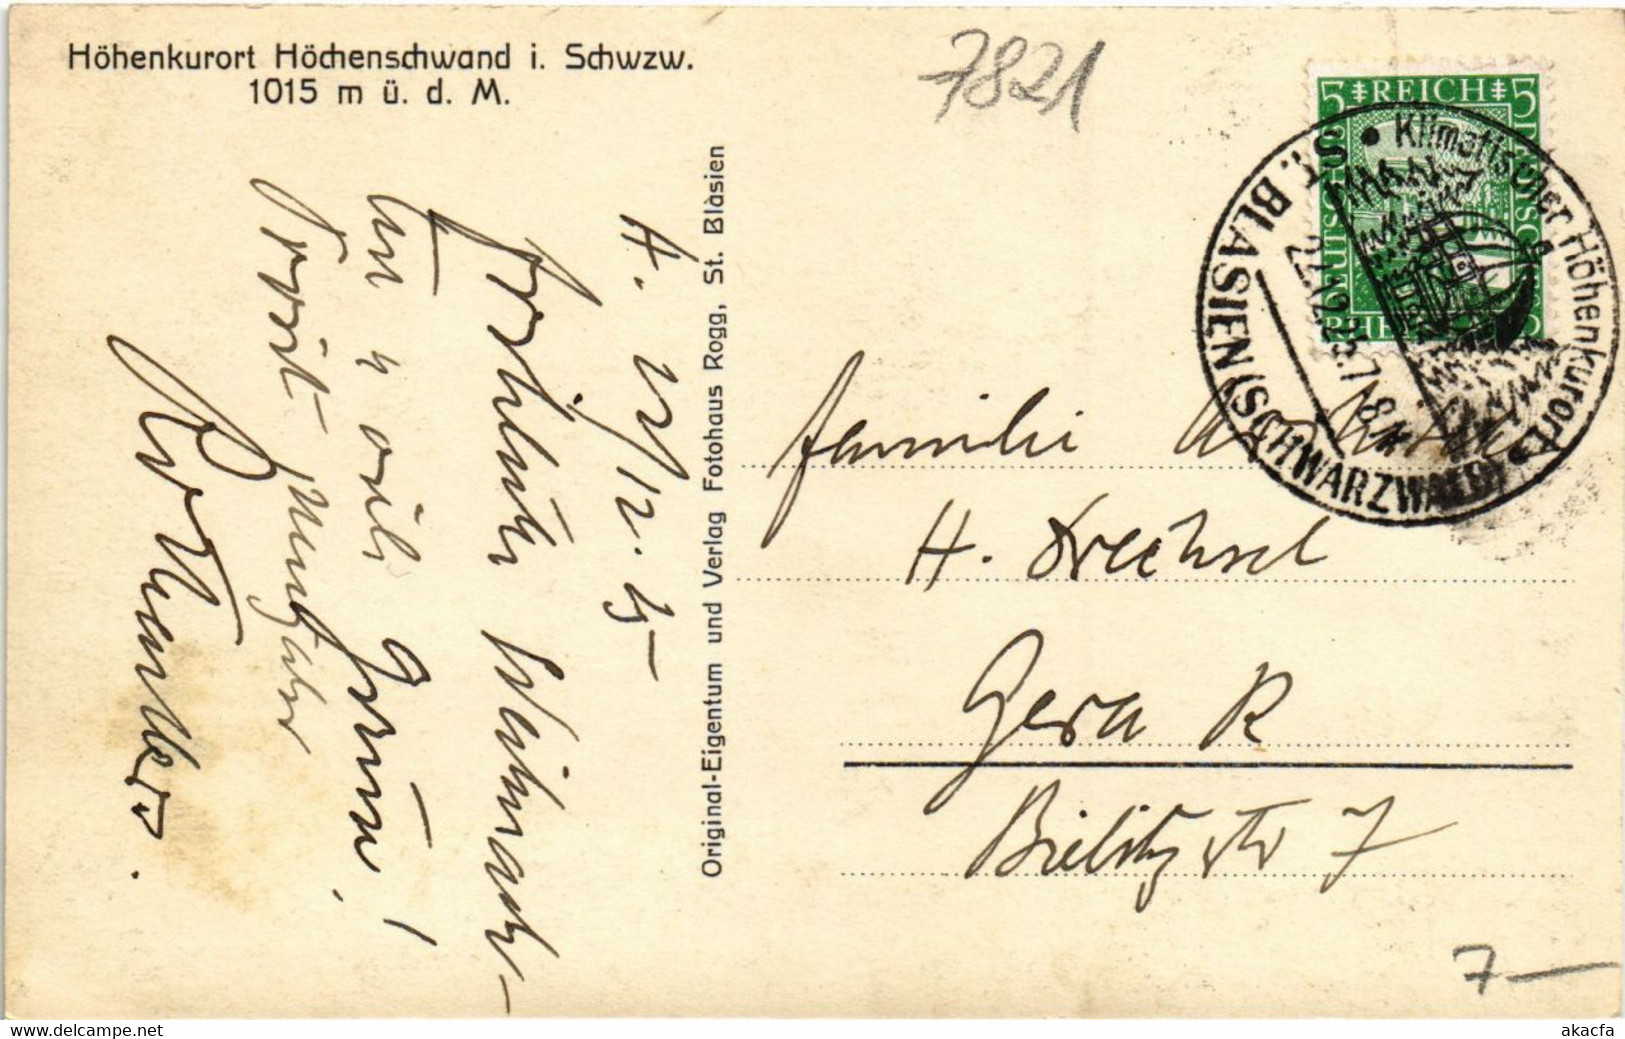 Höhenkurort Höchenschwand i. Schwzw.
1015 m ü. d. M.
7821
5 REICH 5
Klimatischer Höhenkurort
ST. BLASIEN (SCHWARZWALD)
22.12.25.7-8.N.
Original-Eigentum und Verlag Fotohaus Rogg, St. Blasien
H. 21/12. 25
Fröhliche Weihnachts-
u.
Prosit Neujahr
Familie
H. Drechsel
Gera R
Bielitzstr 7
7-
akacfa